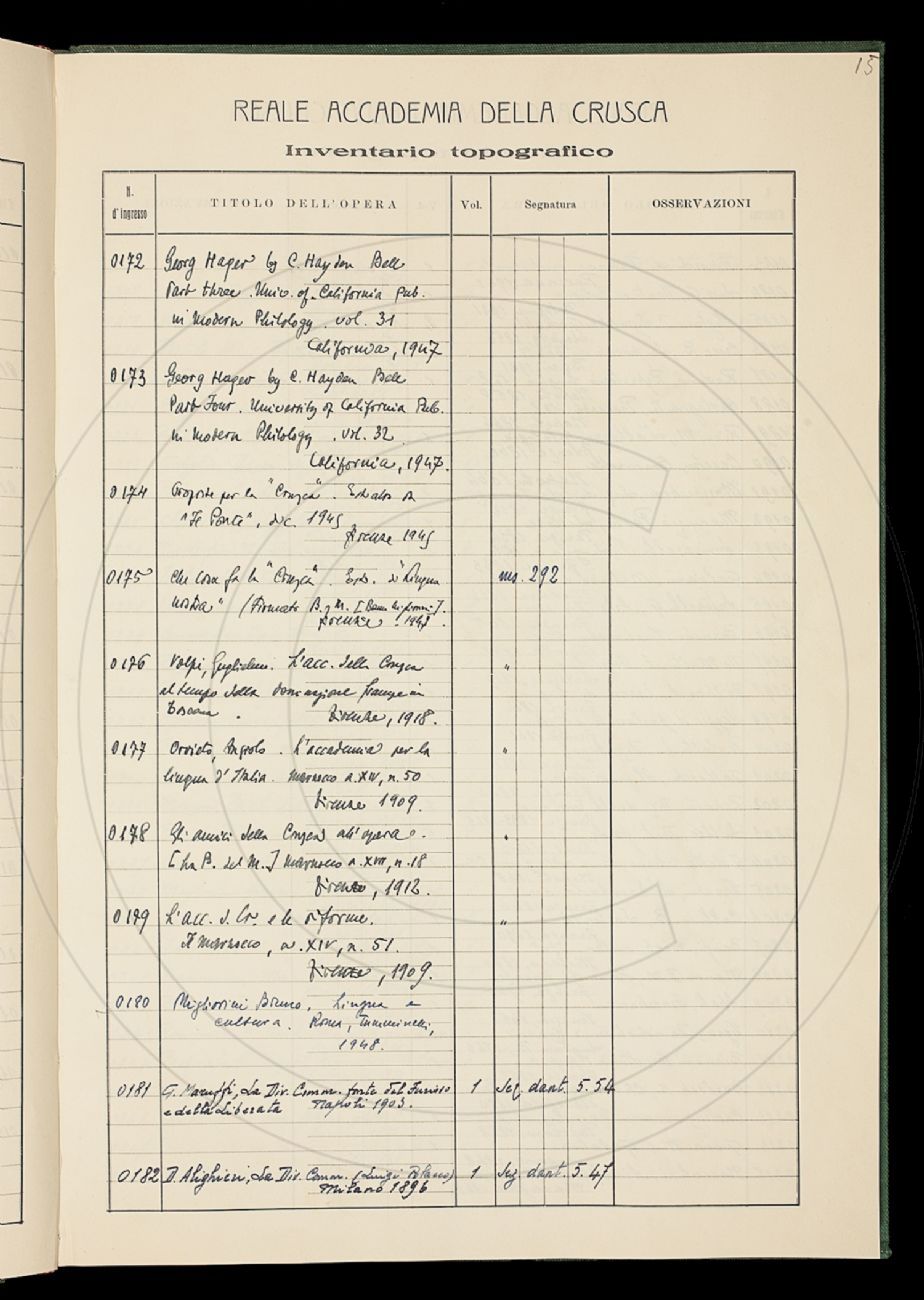 15
REALE ACCADEMIA DELLA CRUSCA
Inventario topografico
N. d'ingresso TITOLO DELL'OPERA Vol. Segnatura OSSERVAZIONI
0172 Georg Hager by C. Hayden Bell
Part three. Univ. of California Pub.
in Modern Philology. vol. 31
California, 1947
0173 Georg Hager by C. Hayden Bell
Part Four. University of California Pub.
in Modern Philology. vol. 32
California, 1947.
0174 Proposte per la "Crusca". Estratto da
"Il Ponte", dic. 1945
Firenze 1945
0175 Che cosa fa la "Crusca". Estr. d "Lingua ms. 292
nostra" (Firmato B. M. [
Firenze 1948.
0176 Volpi, Guglielmo. L'acc. della Crusca "
al tempo della dominazione francese in
Toscana. Firenze, 1918.
0177 Orvieto, Angiolo. L'accademia per la "
lingua d'Italia. Marzocco a. XIV, n. 50
Firenze 1909.
0178 Gli amici della Crusca all'opera. "
[La P. del M.] Marzocco a. XVII, n. 18
Firenze, 1912.
0179 L'acc. d. Cr. e le riforme. "
Il Marzocco, a. XIV, n. 51.
Firenze, 1909.
0180 Migliorini Bruno. Lingua e
cultura. Roma, Tumminelli,
1948.
0181 G. Maruffi, La Div. Comm. fonte del Furioso 1 Sez. dant. 5. 54
e della Liberata Napoli 1903.
0182 D. Alighieri, La Div. Comm. (Luigi Polacco) 1 Sez. dant. 5. 47
Milano 1896